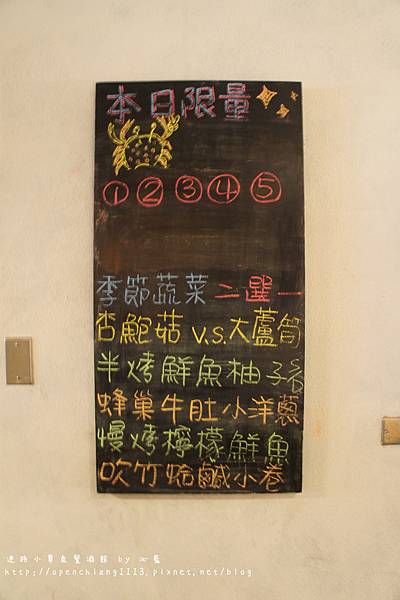 本日限量
① ② ③ ④ ⑤
季節蔬菜二選一
杏鮑菇 v.s.大蘆筍
半烤鮮魚柚子
蜂巢牛肚小洋蔥
慢烤檸檬鮮魚
吹竹蛤鹹小卷
迷路小章魚餐酒館 by 沁藍
http://openchiang1113.pixnet.net/blog